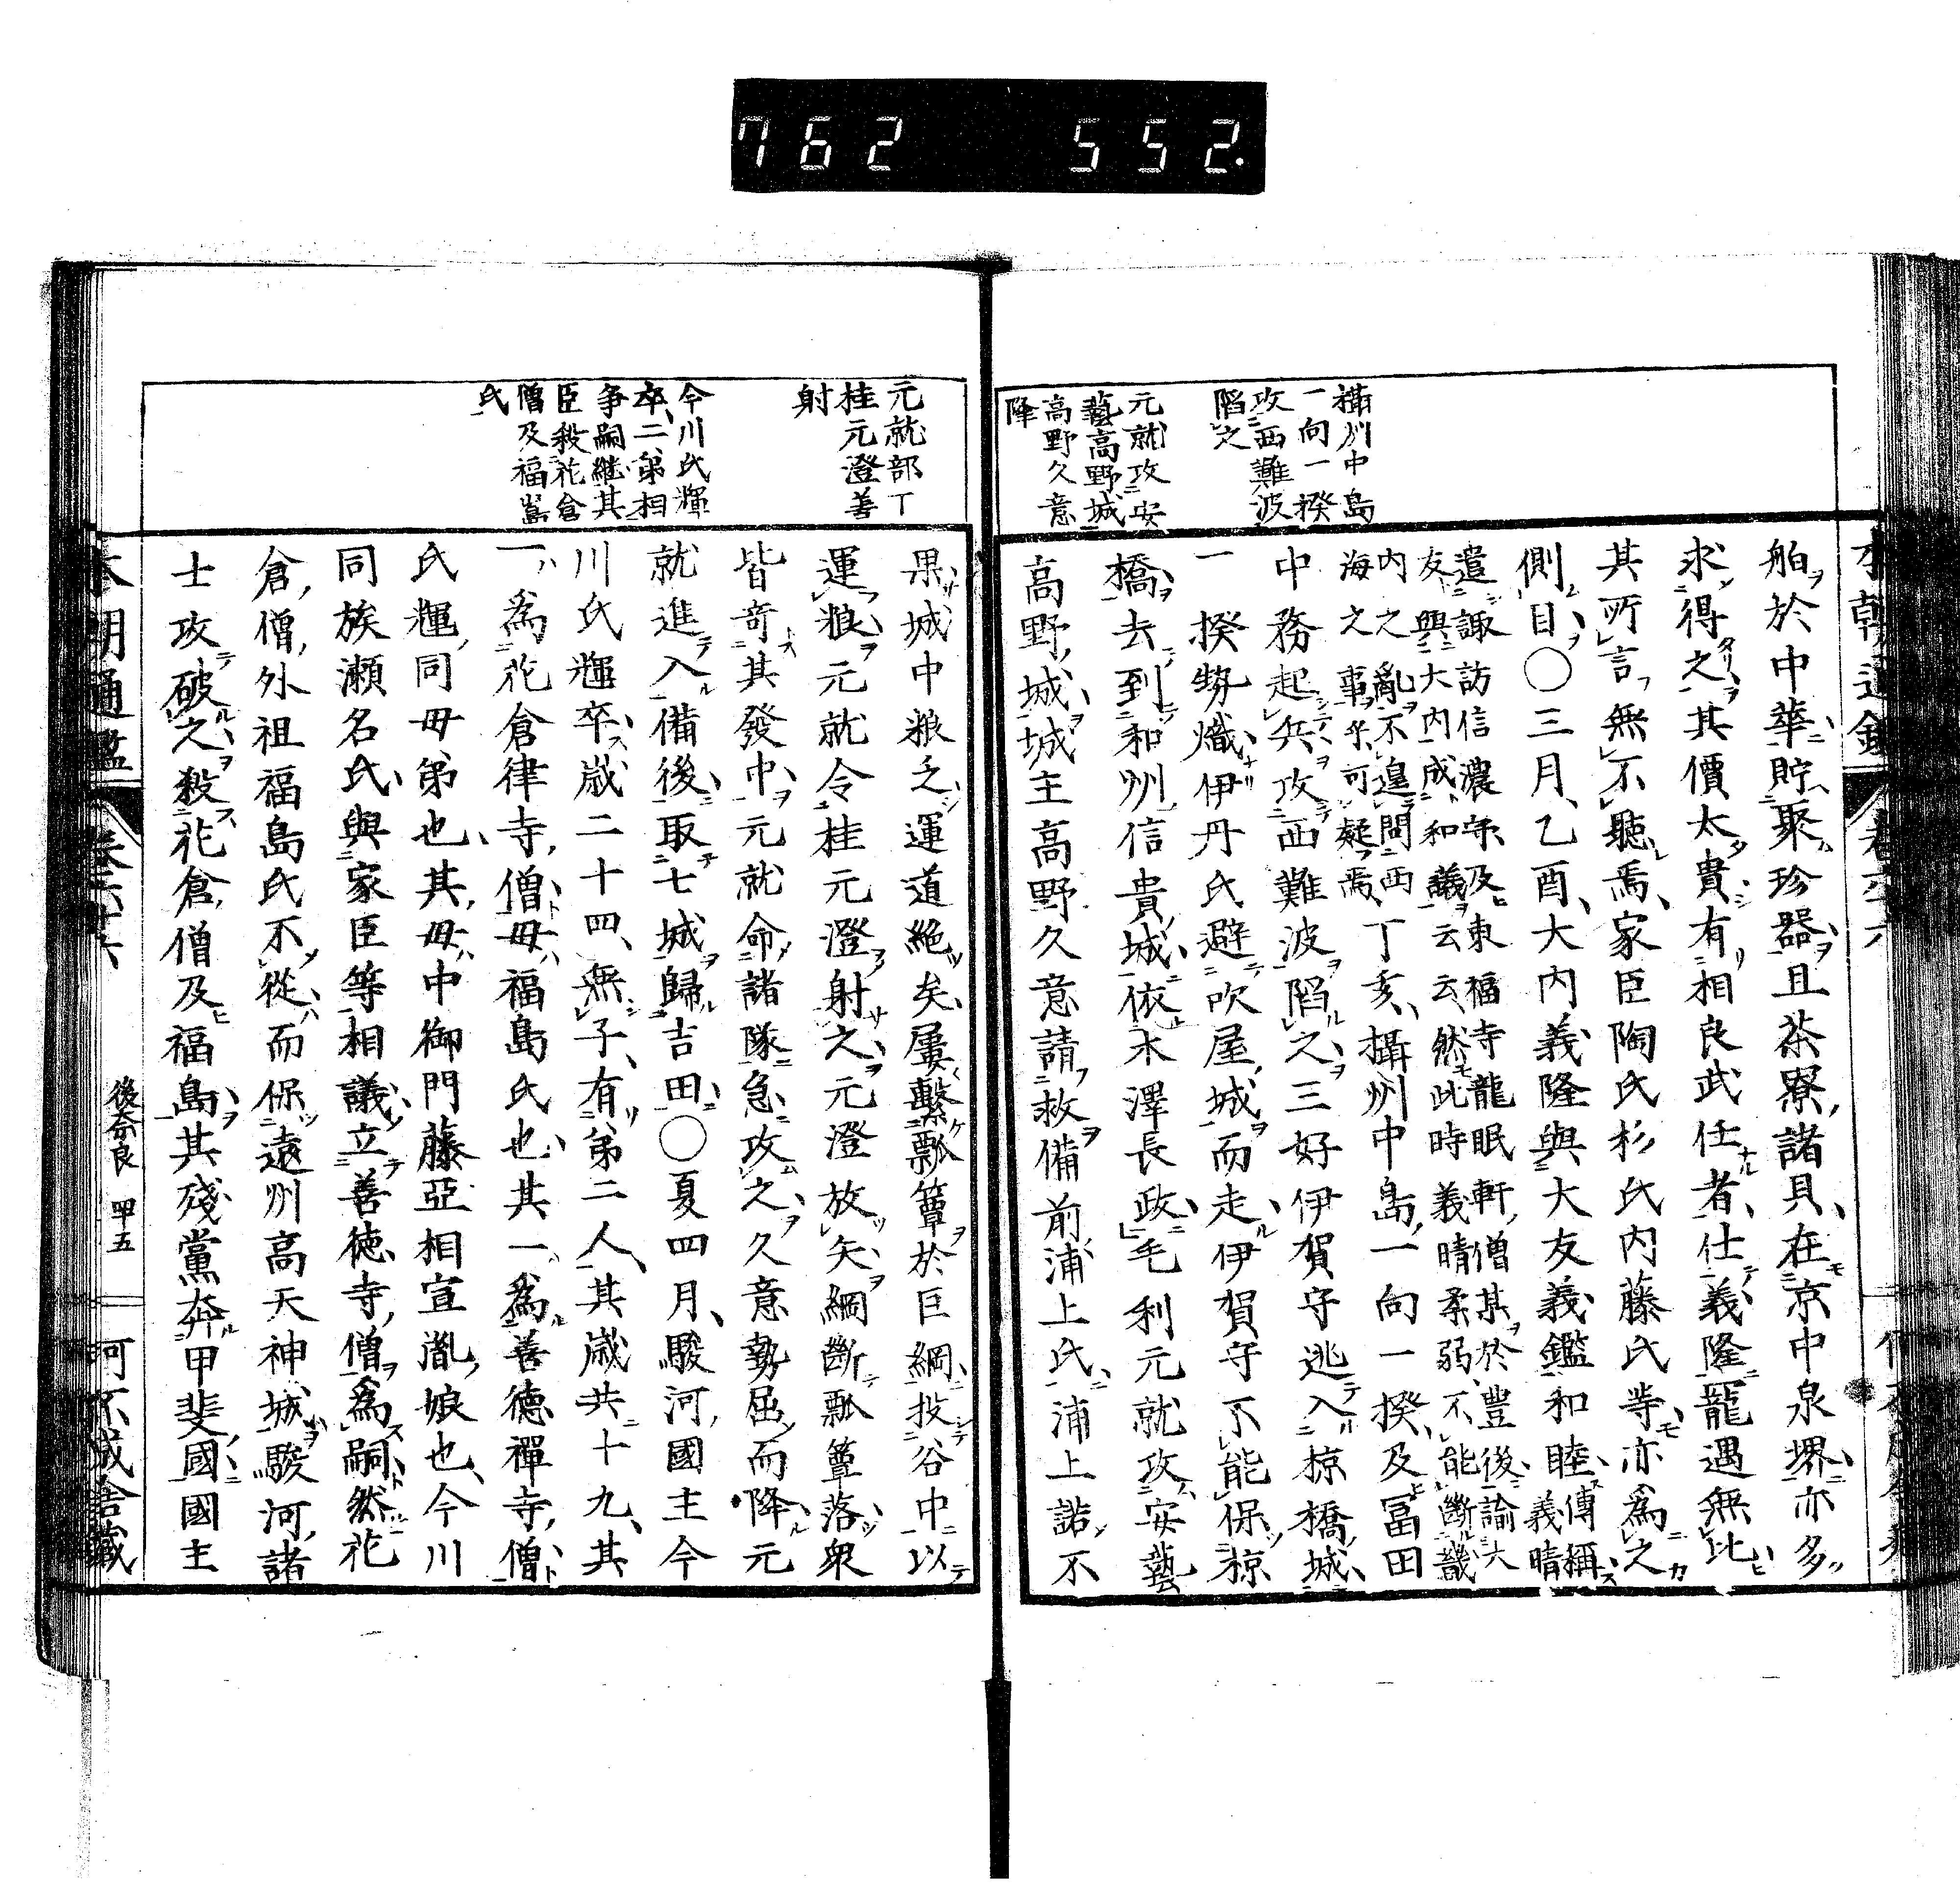 762 552.
攝州中島
一向一揆
攻西難波
陷之
元就攻安
藝高野城
高野久意
降
舶於中華貯聚珍器且茶寮諸具在京中泉堺亦多
求得之其價太貴有相良武任者仕義隆寵遇無比
其所言無不聽焉家臣陶氏杉氏内藤氏等亦為之
側目〇三月乙酉大内義隆與大友義鑑和睦傳稱義晴
遣諏訪信濃守及東福寺龍眠軒僧某於豊後諭大
友與大内成和議云云然此時義晴柔弱不能斷畿
内之亂不遑問西
海之事乎可疑焉丁亥攝州中島一向一揆及冨田
中務起兵攻西難波陷之三好伊賀守逃入椋橋城
一揆勢熾伊丹氏避吹屋城而走伊賀守不能保椋
橋去到和州信貴城依木澤長政毛利元就攻安藝
高野城城主高野久意請救備前浦上氏浦上諾不
元就部丁
桂元澄善
射
今川氏輝
卒二弟相
争嗣継其
臣殺花倉
僧及福嶌
氏
果城中粮乏運道絶矣屢繫瓢簞於巨綱投谷中以
運粮元就令桂元澄射之元澄放矢綱斷瓢簞落衆
皆奇其發中元就命諸隊急攻之久意勢屈而降元
就進入備後取七城歸吉田〇夏四月駿河國主今
川氏輝卒歳二十四無子有弟二人其歳共十九其
一為花倉律寺僧母福島氏也其一為善德禪寺僧
氏輝同母弟也其母中御門藤亞相宣胤娘也今川
同族瀬名氏與家臣等相議立善徳寺僧為嗣然花
倉僧外祖福島氏不從而保遠州高天神城駿河諸
士攻破之殺花倉僧及福島其殘黨奔甲斐國國主
本朝通鑑 卷六十六 後奈良 四十五